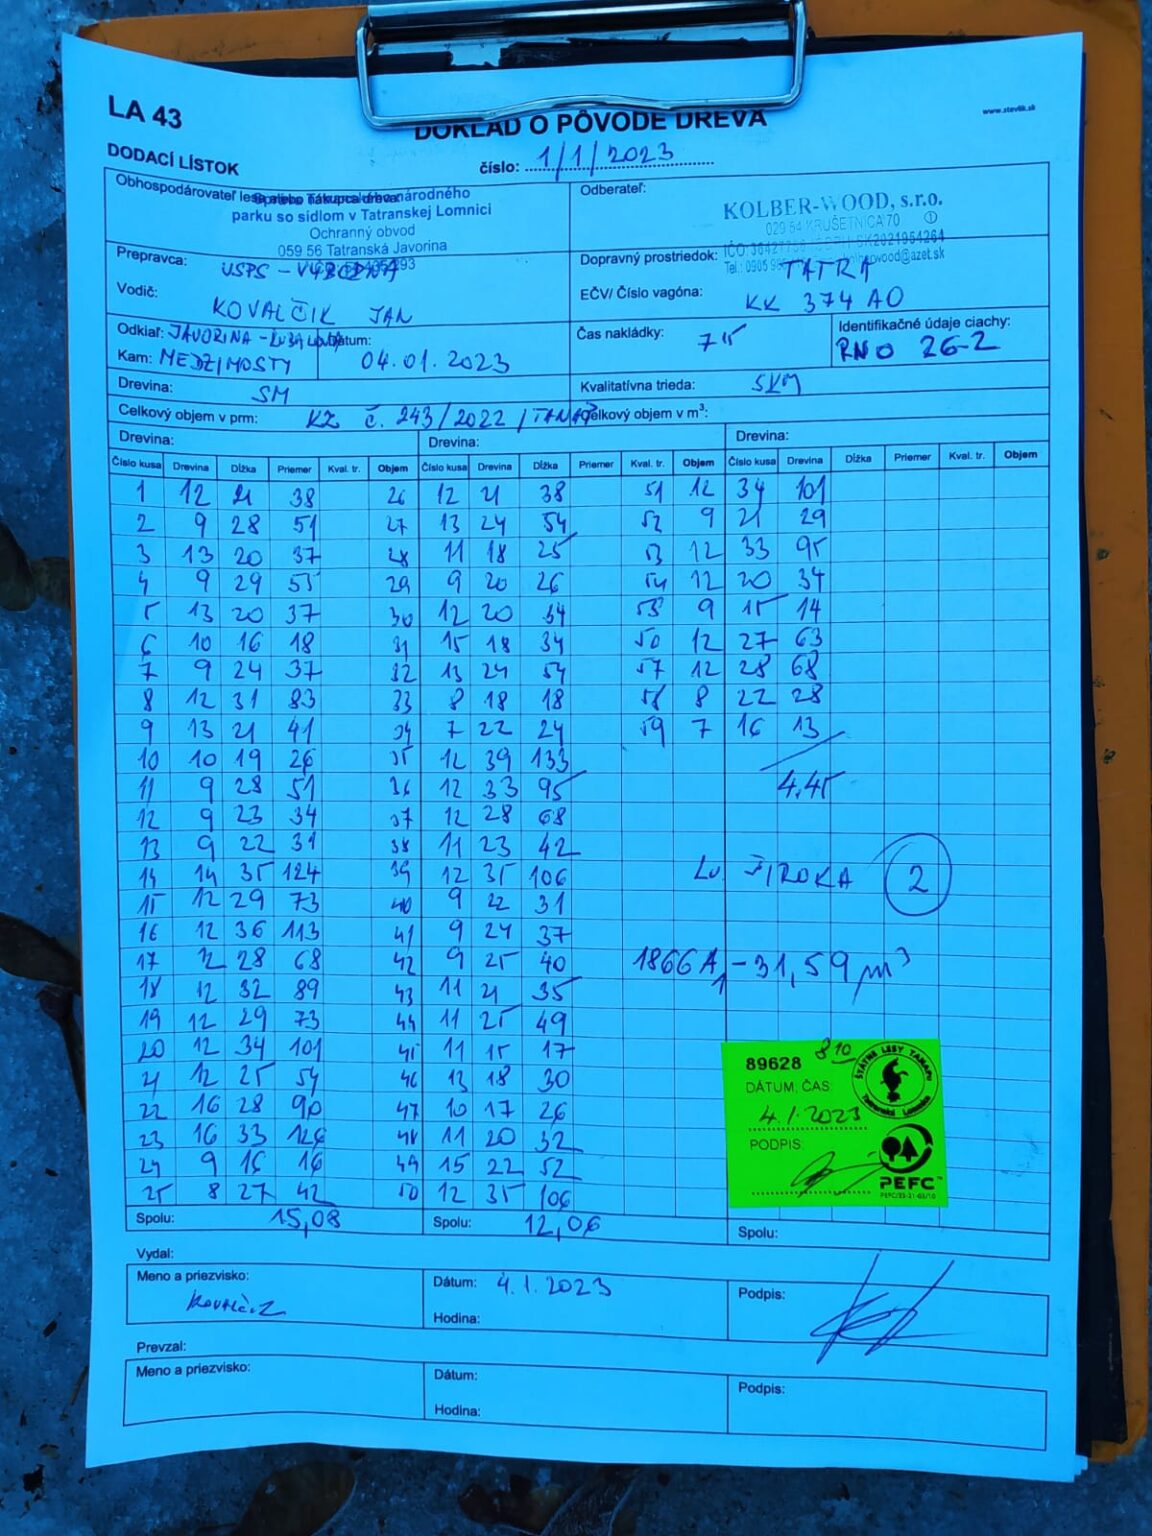 LA 43
DOKLAD O PÔVODE DREVA
www.stevlik.sk
DODACÍ LÍSTOK
číslo: 1/1/2023
Obhospodárovateľ lesa
národného
parku so sídlom v Tatranskej Lomnici
Ochranný obvod
059 56 Tatranská Javorina
Odberateľ:
KOLBER-WOOD, s.r.o.
029 54 KRUŠETNICA 70
Prepravca: USPS -
Dopravný prostriedok: TATRA
Vodič: KOVALČIK JAN
EČV/ Číslo vagóna: KK 374 AO
Odkiaľ: JAVORINA -
Kam: MEDZIMOSTY
Dátum: 04.01.2023
Čas nakládky: 7 15
Identifikačné údaje ciachy: RNO 26-2
Drevina: SM
Kvalitatívna trieda:
Celkový objem v prm: KZ č. 243/2022 /
Celkový objem v m³:
Drevina: Drevina: Drevina:
Číslo kusa Drevina Dĺžka Priemer Kval. tr. Objem Číslo kusa Drevina Dĺžka Priemer Kval. tr. Objem Číslo kusa Drevina Dĺžka Priemer Kval. tr. Objem
1 12 21 38 26 12 21 38 51 12 34 101
2 9 28 51 27 13 24 54 52 9 21 29
3 13 20 37 28 11 18 25 53 12 33 95
4 9 29 55 29 9 20 26 54 12 20 34
5 13 20 37 30 12 20 34 55 9 15 14
6 10 16 18 31 15 18 34 56 12 27 63
7 9 24 37 32 13 24 54 57 12 28 68
8 12 31 83 33 8 18 18 58 8 22 28
9 13 21 41 34 7 22 24 59 7 16 13
10 10 19 26 35 12 39 133
11 9 28 51 36 12 33 95 4,45
12 9 23 34 37 12 28 68
13 9 22 31 38 11 23 42
14 14 35 124 39 12 35 106 ŠIROKA 2
15 12 29 73 40 9 22 31
16 12 36 113 41 9 24 37
17 12 28 68 42 9 25 40 1866A, - 31,59 m³
18 12 32 89 43 11 21 35
19 12 29 73 44 11 25 49
20 12 34 101 45 11 15 17
21 12 25 54 46 13 18 30
22 16 28 90 47 10 17 26
23 16 33 126 48 11 20 32
24 9 16 16 49 15 22 52
25 8 27 42 50 12 35 106
Spolu: 15,08 Spolu: 12,06 Spolu:
89628 8 10
DÁTUM, ČAS
4.1.2023
PODPIS:
ŠTÁTNE LESY TANAPU
Tatranská Lomnica
PEFC™
Vydal:
Meno a priezvisko:
Dátum: 4.1.2023
Hodina:
Podpis:
Prevzal:
Meno a priezvisko:
Dátum:
Hodina:
Podpis: